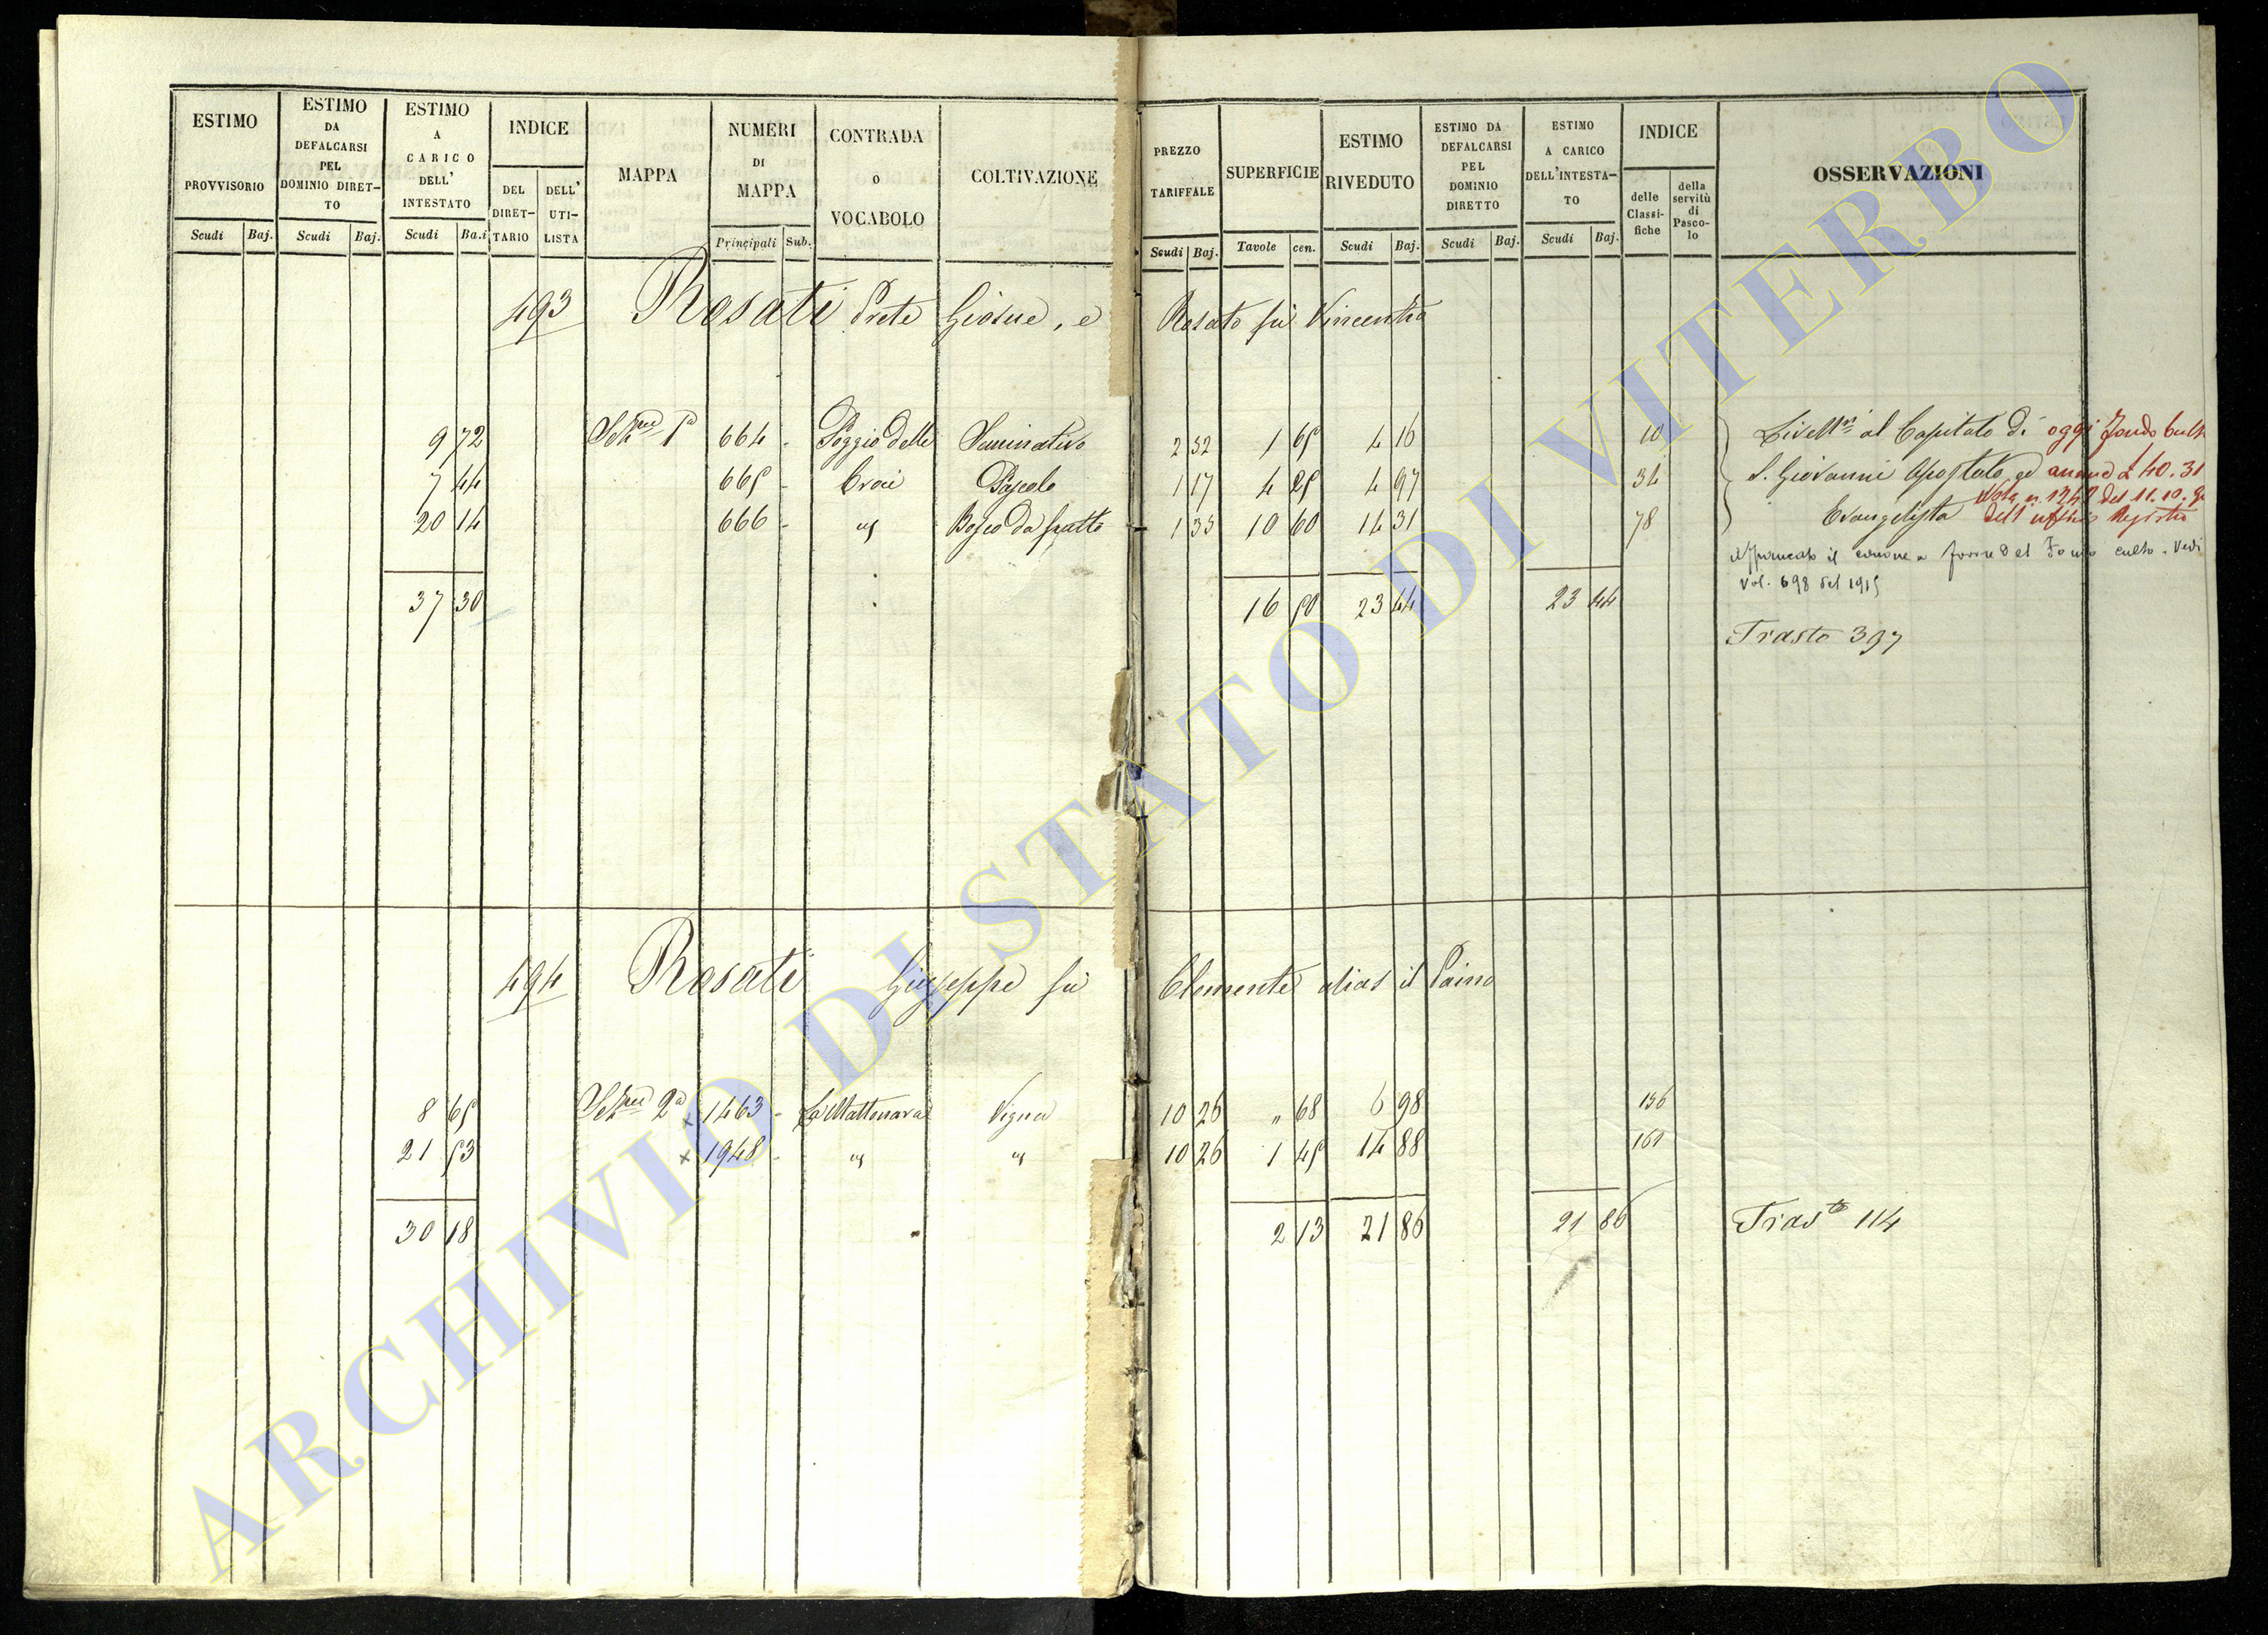 ESTIMO PROVVISORIO
Scudi Baj.
ESTIMO DA DEFALCARSI PEL DOMINIO DIRET-TO
Scudi Baj.
ESTIMO A CARICO DELL' INTESTATO
Scudi Ba.i
INDICE
DEL DIRET-TARIO
DELL' UTI-LISTA
MAPPA
NUMERI DI MAPPA
Principali Sub.
CONTRADA O VOCABOLO
COLTIVAZIONE
PREZZO TARIFFALE
Scudi Baj.
SUPERFICIE
Tavole cen.
ESTIMO RIVEDUTO
Scudi Baj.
ESTIMO DA DEFALCARSI PEL DOMINIO DIRETTO
Scudi Baj.
ESTIMO A CARICO DELL'INTESTA-TO
Scudi Baj.
INDICE
delle Classi-fiche
della servitù di Pasco-lo
OSSERVAZIONI
493 Rosati Prete Giosue, e Rosato fu Vincentio
9 72 Sezne 1a 664 - Poggio delle Seminativo 2 52 1 65 4 16 10 Livellri al Capitolo di oggi Fondo Culto
7 44 665 - Croci Pascolo 1 17 4 25 4 97 34 S. Giovanni Apostolo ed annuo £ 40.31
20 14 666 - " Bosco da frutto 1 35 10 60 14 31 78 Evangelista dell'uffizio Registro
il canone a favore del Fondo culto. Vedi
Vol. 698 del 1915
37 30 16 50 23 44 23 44
Trasto 397
494 Rosati Giuseppe fu Clemente alias il Paino
8 65 Sezne 2a x 1463 - La Mattonara Vigna 10 26 " 68 6 98 156
21 53 x 1948 - " " 10 26 1 45 14 88 161
30 18 2 13 21 86 21 86 Trasto 114
ARCHIVIO DI STATO DI VITERBO